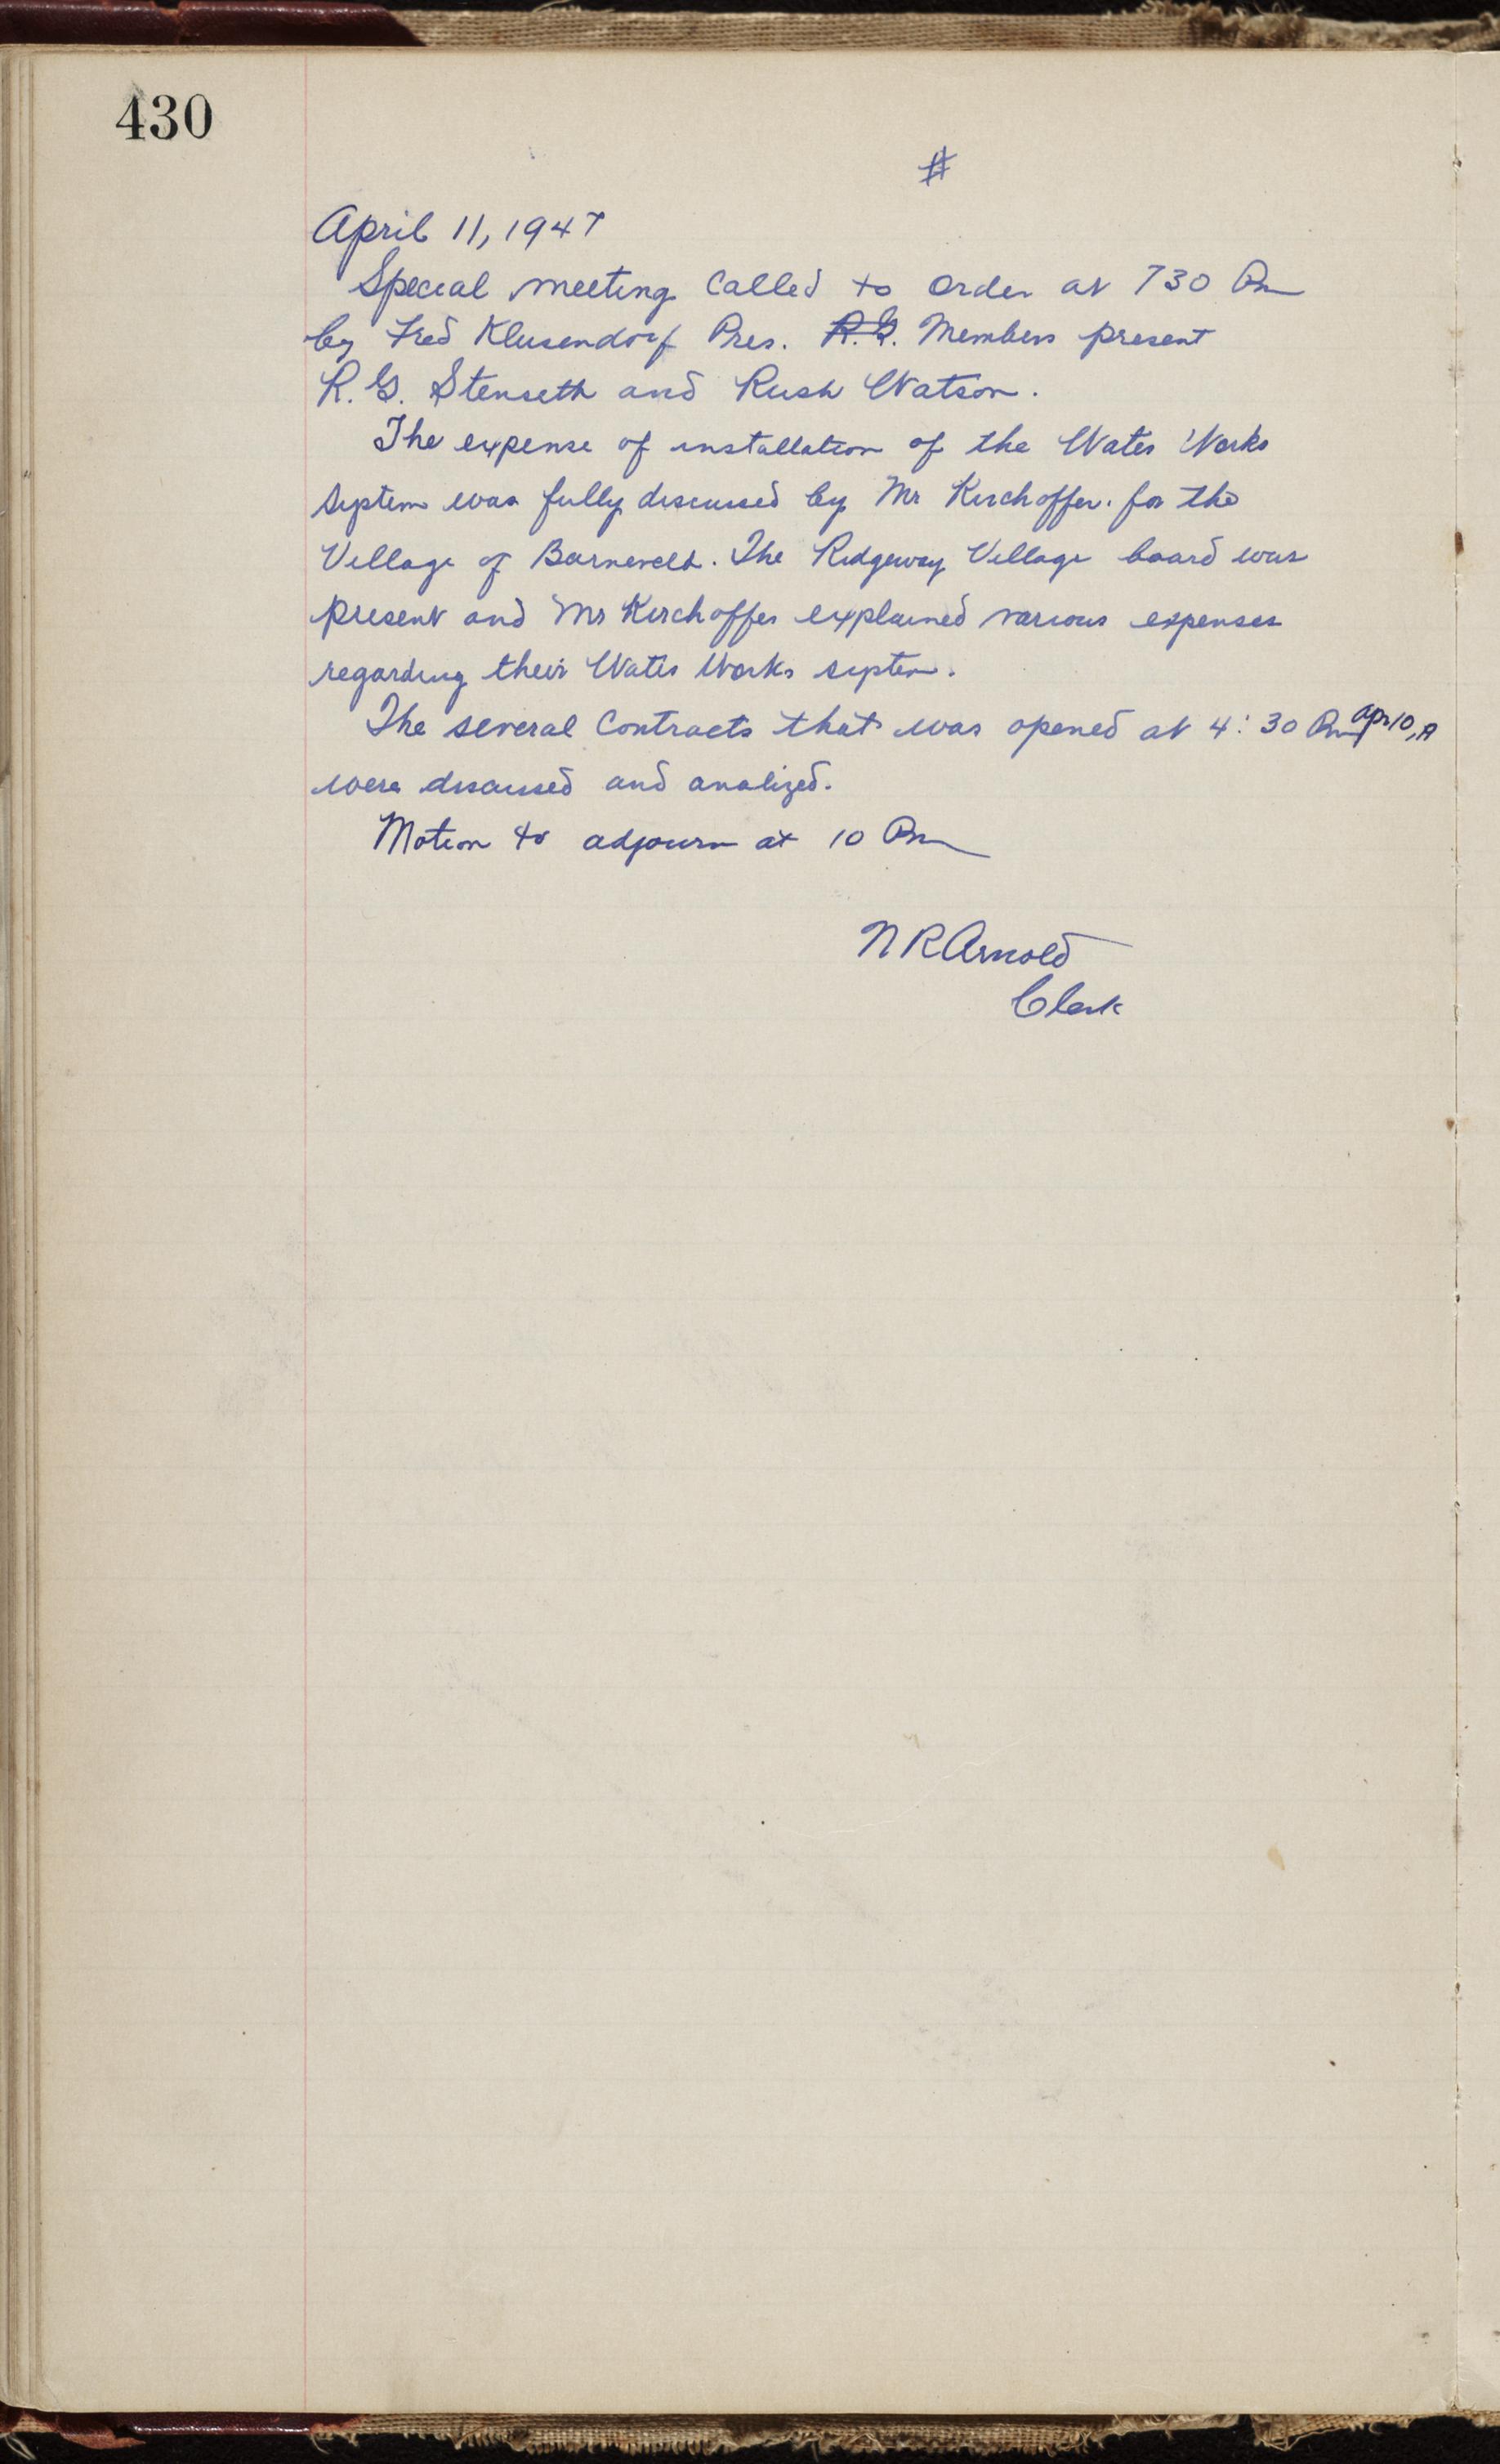 430
#
April 11, 1947
Special meeting called to order at 730 Pm
by Fred Klusendorf Pres. R.G. Members present
R.G. Stenseth and Rush Watson.
The expense of installation of the Water Works
system was fully discussed by Mr Kirchoffer. for the
Village of Barneveld. The Ridgeway Village board was
present and Mr Kirchoffer explained various expenses
regarding their Water Works system.
The several Contracts that was opened at 4:30 Pm Apr 10,
were discussed and analized.
Motion to adjourn at 10 Pm
N R Arnold
Clerk